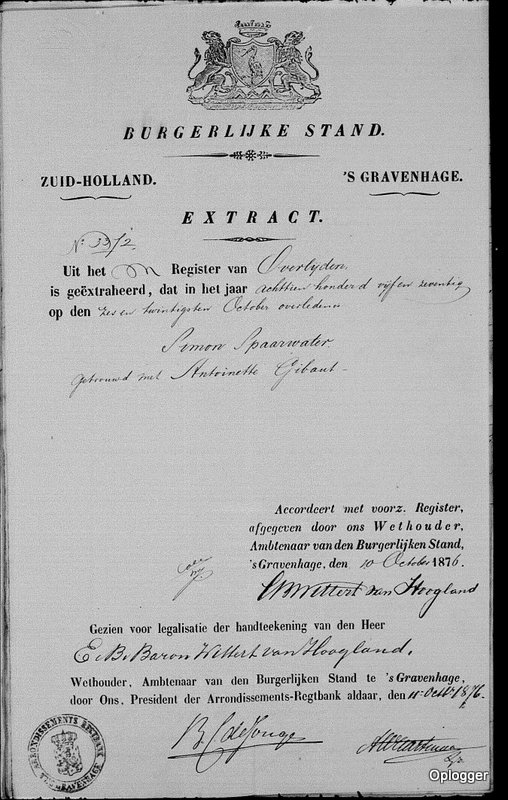 BURGERLIJKE STAND.
ZUID-HOLLAND.
'S GRAVENHAGE.
EXTRACT.
Uit het Register van Overlyden
is geëxtraheerd, dat in het jaar achttien honderd vijf en zeventig
op den zes en twintigsten October overleden
Simon Spaarwater
getrouwd met Antoinette Gibaut
Accordeert met voorz. Register,
afgegeven door ons Wethouder,
Ambtenaar van den Burgerlijken Stand,
's Gravenhage, den 10 October 1876.
Wittert van Hoogland
Gezien voor legalisatie der handteekening van den Heer
E. B. Baron Wittert van Hoogland,
Wethouder, Ambtenaar van den Burgerlijken Stand te 's Gravenhage,
door Ons, President der Arrondissements-Regtbank aldaar, den 11 Octbr 1876.
de Jonge
ARRONDISSEMENTS REGTBANK
'S GRAVENHAGE
Oplogger